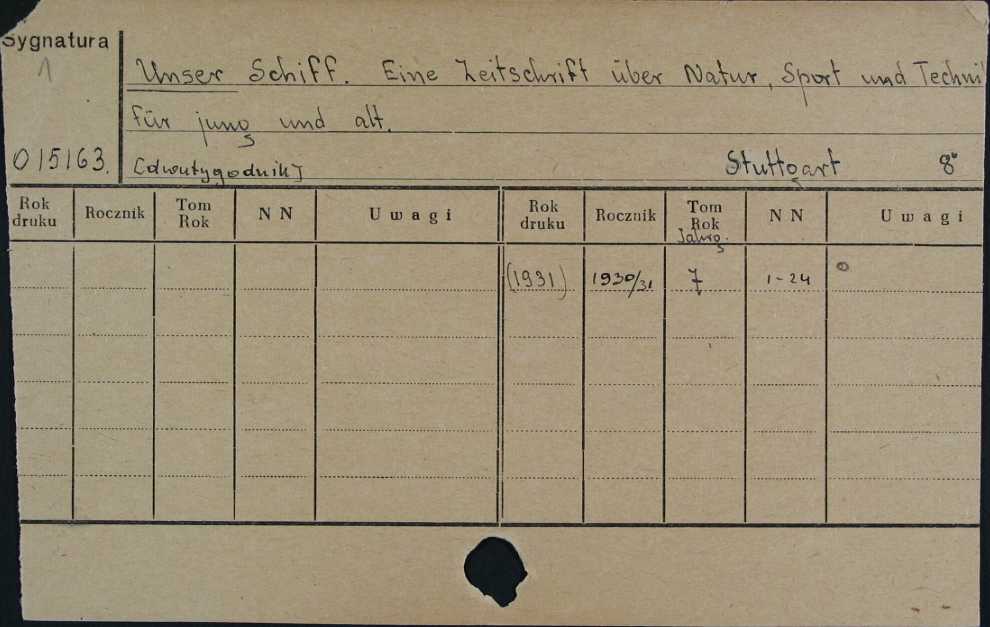 Sygnatura
1
Unser Schiff. Eine Zeitschrift über Natur, Sport und Techni
für jung und alt.
015163. [dwutygodnik] Stuttgart 8°
Rok druku Rocznik Tom Rok NN Uwagi Rok druku Rocznik Tom Rok Jahrg. NN Uwagi
(1931) 1930/31 7 1-24